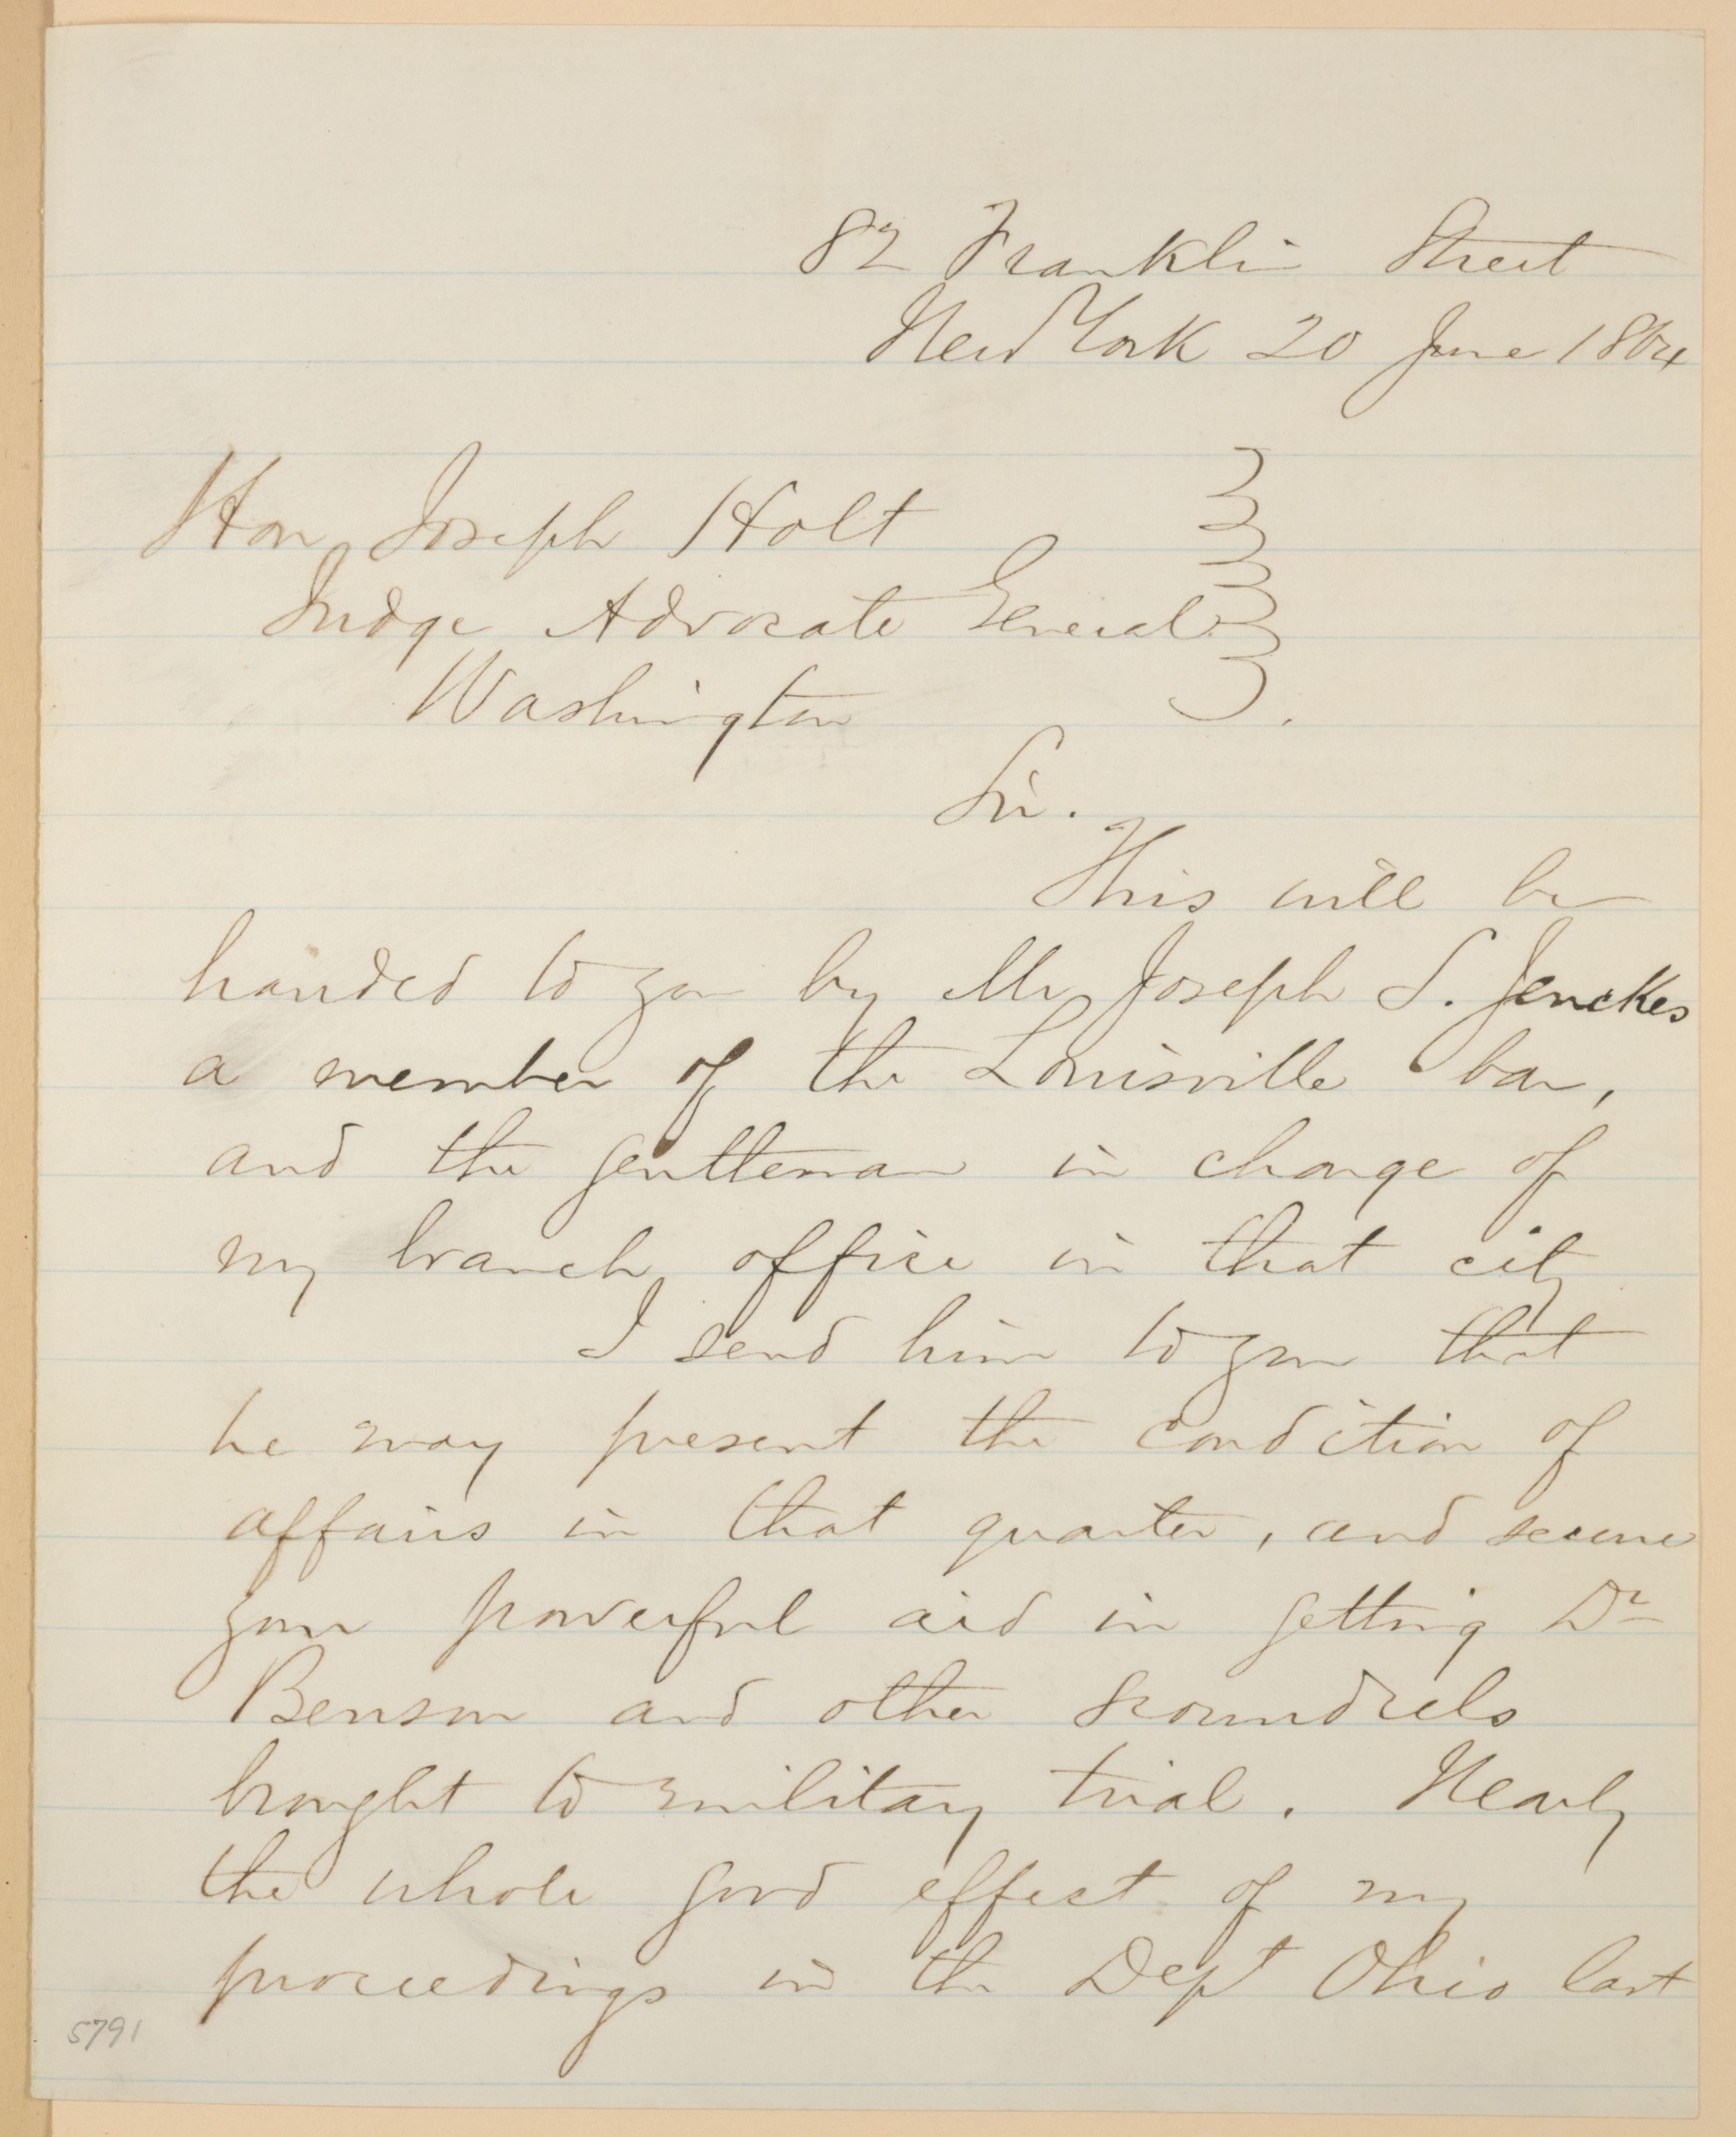 82 Franklin Street
New York 20 June 1864
Hon Joseph Holt
Judge Advocate General
Washington
Sir.
This will be
handed to you by Mr Joseph S. Jenckes
a member of the Louisville bar,
and the gentleman in charge of
my branch office in that city
I send him to you that
he may present the condition of
affairs in that quarter, and secure
your powerful aid in getting Dr
Benson and other scoundrels
brought to military trial. Nearly
the whole good effect of my
proceedings in the Dept Ohio last
5791